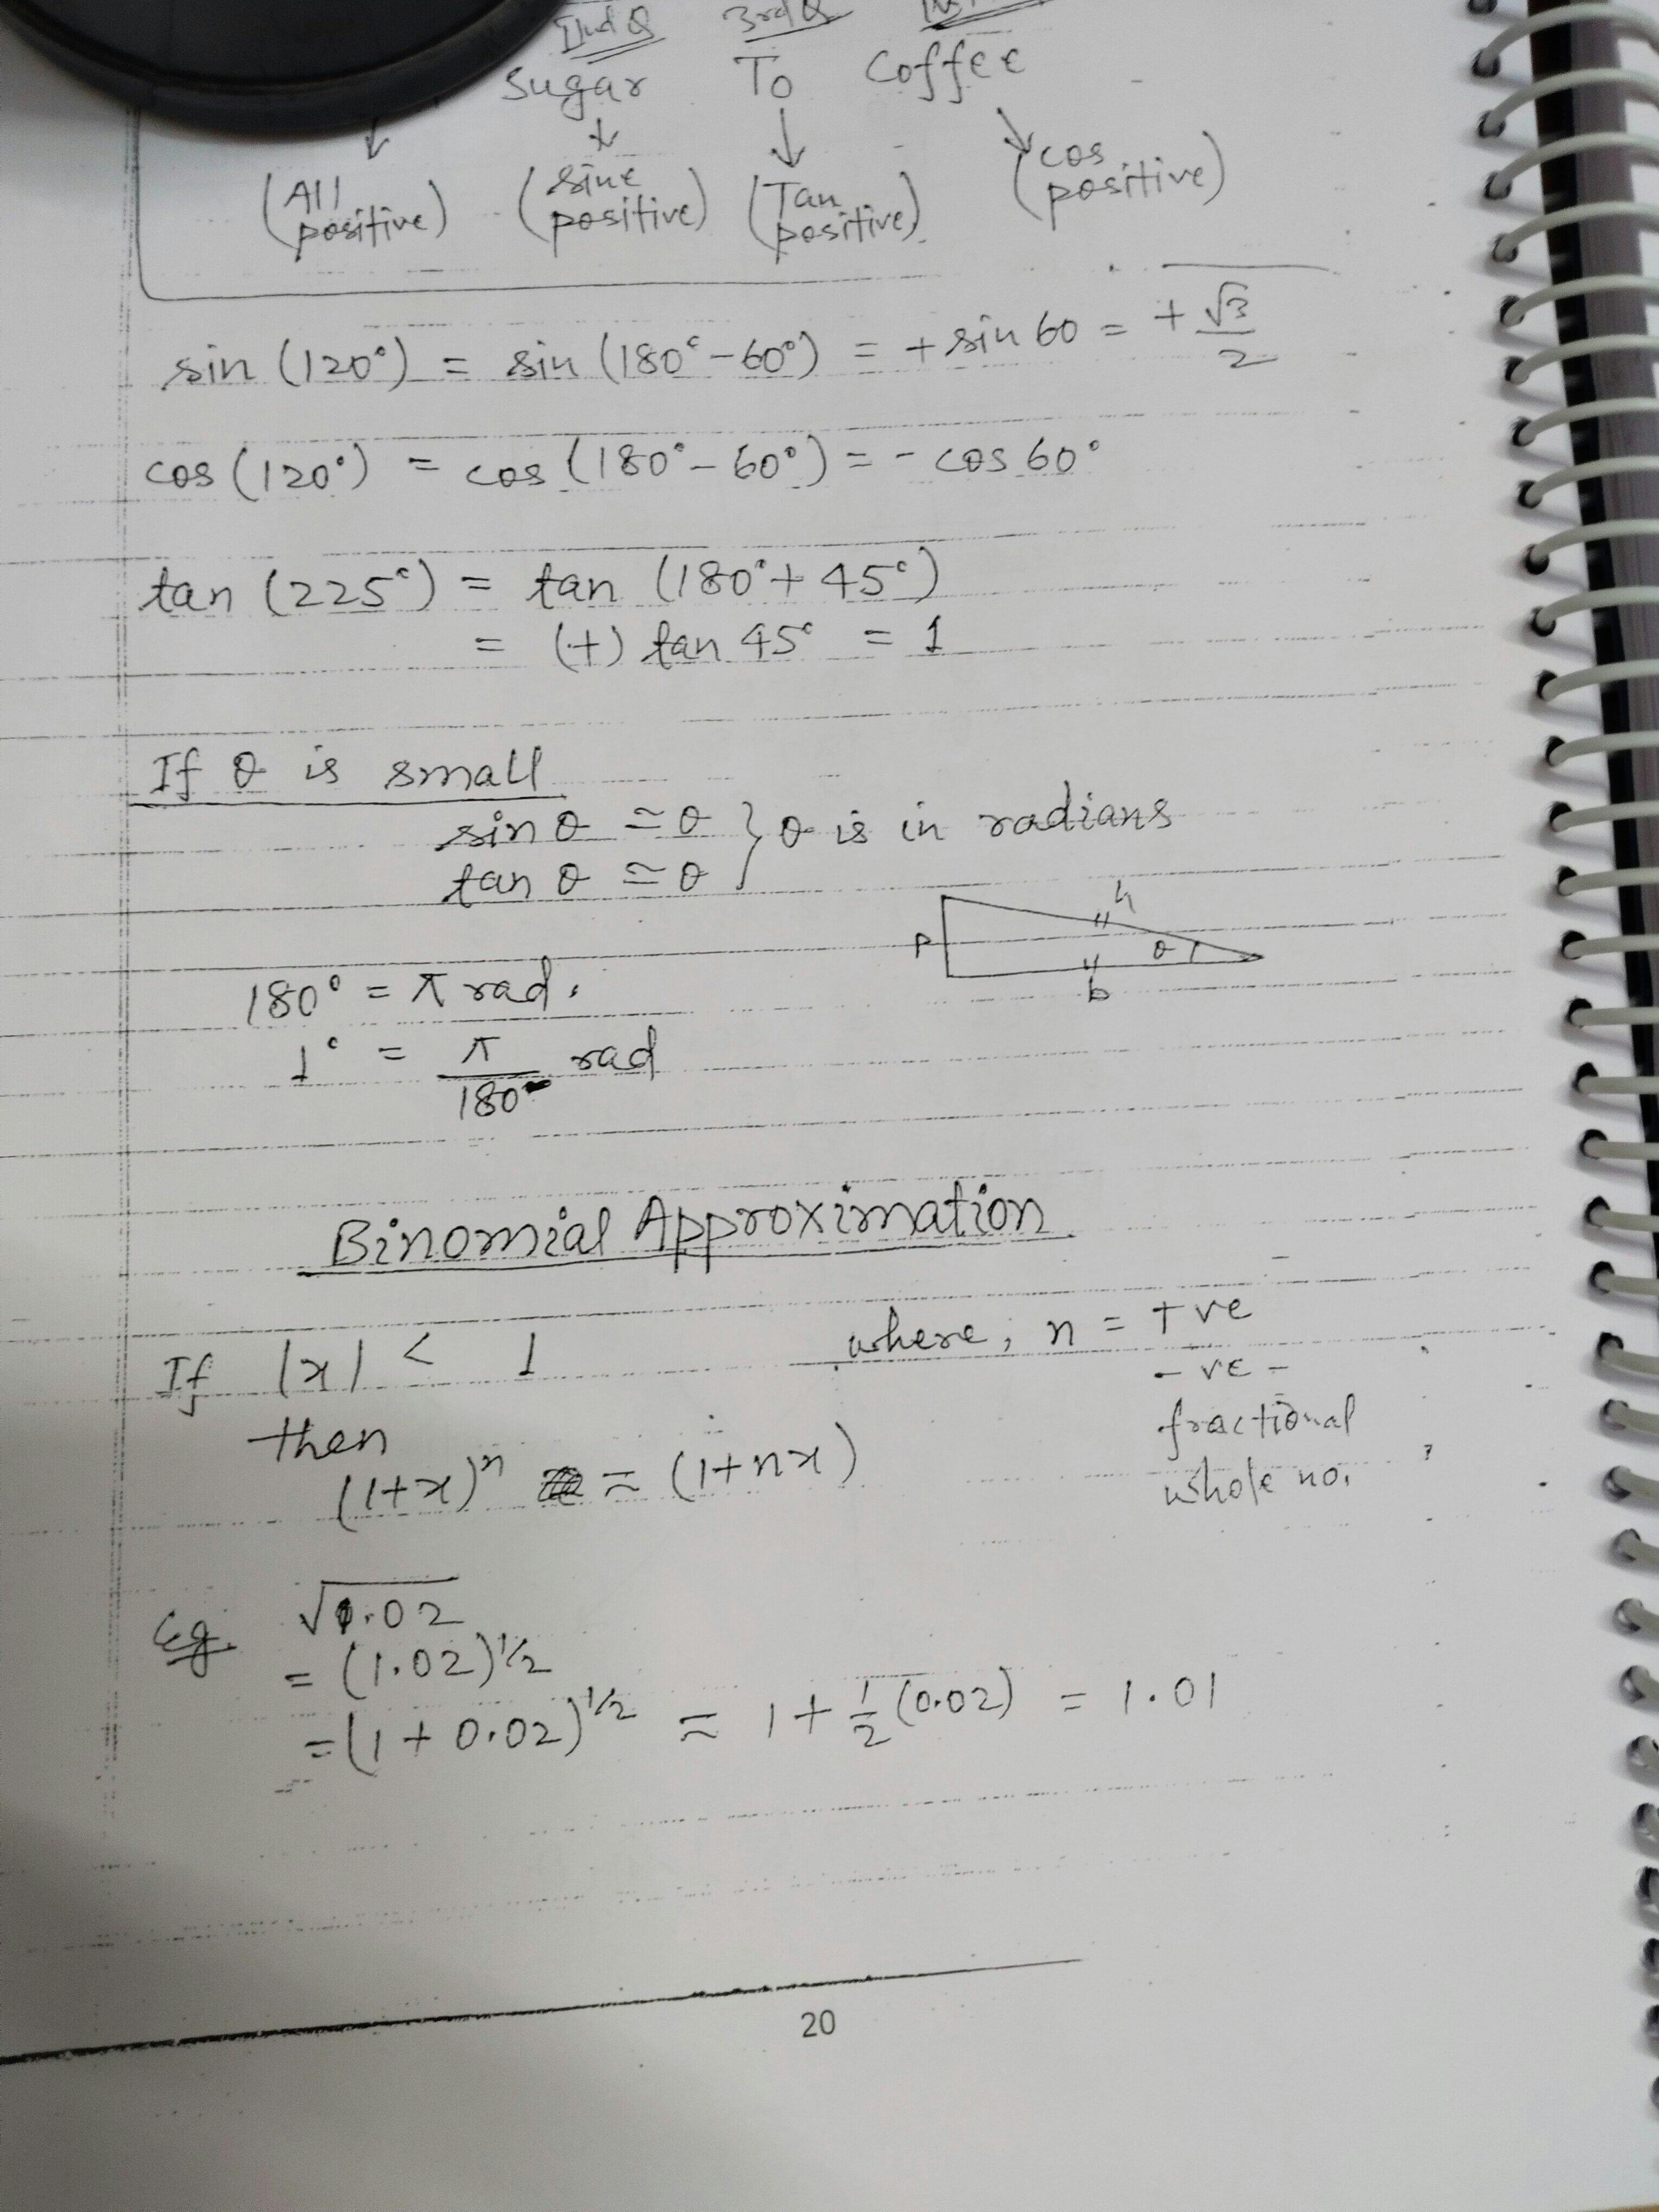 IInd Q 3rd Q
Sugar To Coffee
(All positive) (sine positive) (Tan positive) (cos positive)
sin (120°) = sin (180° - 60°) = + sin 60 = + √3/2
cos (120°) = cos (180° - 60°) = - cos 60°
tan (225°) = tan (180° + 45°)
= (+) tan 45° = 1
If θ is small
sin θ ≃ θ } θ is in radians
tan θ ≃ θ
h
P θ
b
180° = π rad.
1° = π/180 rad
Binomial Approximation
If |x| < 1 where, n = +ve
- ve -
then fractional
(1+x)ⁿ ≈ (1+nx) whole no.
Eg. √1.02
= (1.02)^1/2
= (1 + 0.02)^1/2 ≈ 1 + 1/2 (0.02) = 1.01
20